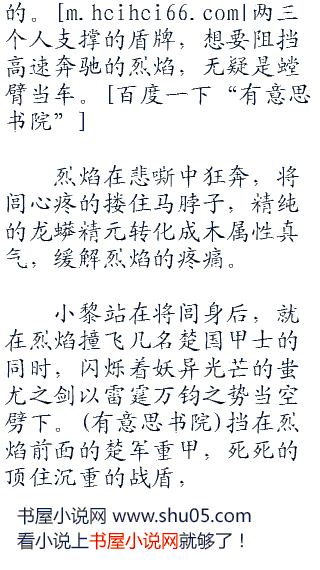 的。[m.hcihci66.com|两三
个人支撑的盾牌，想要阻挡
高速奔驰的烈焰，无疑是螳
臂当车。[百度一下“有意思
书院”]
烈焰在悲嘶中狂奔，将
闾心疼的搂住马脖子，精纯
的龙蟒精元转化成木属性真
气，缓解烈焰的疼痛。
小黎站在将闾身后，就
在烈焰撞飞几名楚国甲士的
同时，闪烁着妖异光芒的蚩
尤之剑以雷霆万钧之势当空
劈下。(有意思书院)挡在烈
焰前面的楚军重甲，死死的
顶住沉重的战盾，
书屋小说网 www.shu05.com
看小说上书屋小说网就够了！